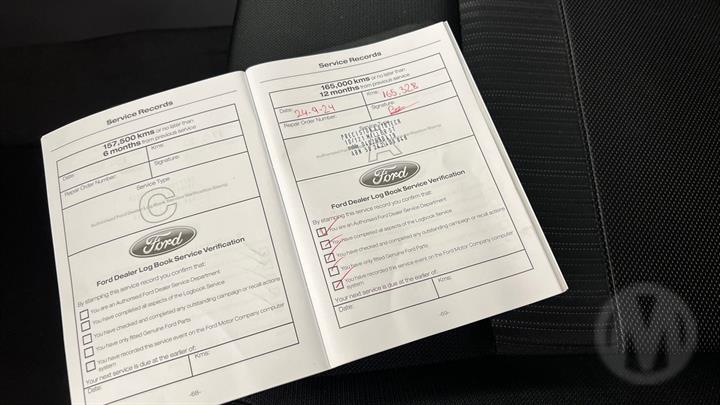 Service Records
157,500 kms or no later than
6 months from previous service
Date:
Kms:
Repair Order Number:
Signature:
Service Type
C
Authorised Ford Dealer Log Book Service Verification Stamp
Ford
Ford Dealer Log Book Service Verification
By stamping this service record you confirm that:
You are an Authorised Ford Dealer Service Department
You have completed all aspects of the Logbook Service
You have checked and completed any outstanding campaign or recall actions
You have only fitted Genuine Ford Parts
You have recorded this service event on the Ford Motor Company computer
system
Your next service is due at the earlier of:
Date:
Kms:
-68-
Service Records
165,000 kms or no later than
12 months from previous service
Date: 24-9-24
Kms: 165,328
Repair Order Number:
Signature:
A
Ford
Ford Dealer Log Book Service Verification
By stamping this service record you confirm that:
You are an Authorised Ford Dealer Service Department
You have completed all aspects of the Logbook Service
You have checked and completed any outstanding campaign or recall actions
You have only fitted Genuine Ford Parts
You have recorded this service event on the Ford Motor Company computer
system
Your next service is due at the earlier of:
Date:
Kms:
-69-
M